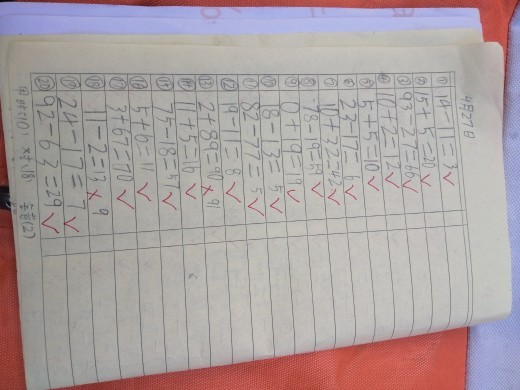 4月27日
① 14-11=3
② 15+5=20
③ 93-27=66
④ 10+2=12
⑤ 5+5=10
⑥ 23-17=6
⑦ 10+32=42
⑧ 78-9=69
⑨ 10+9=19
⑩ 18-13=5
⑪ 82-77=5
⑫ 19-11=8
⑬ 2+89=90 × 91
⑭ 11+5=16
⑮ 75-18=57
⑯ 5+6=11
⑰ 3+67=70
⑱ 11-2=13 × 9
⑲ 24-17=7
⑳ 92-63=29
(10) 对(18) (2)